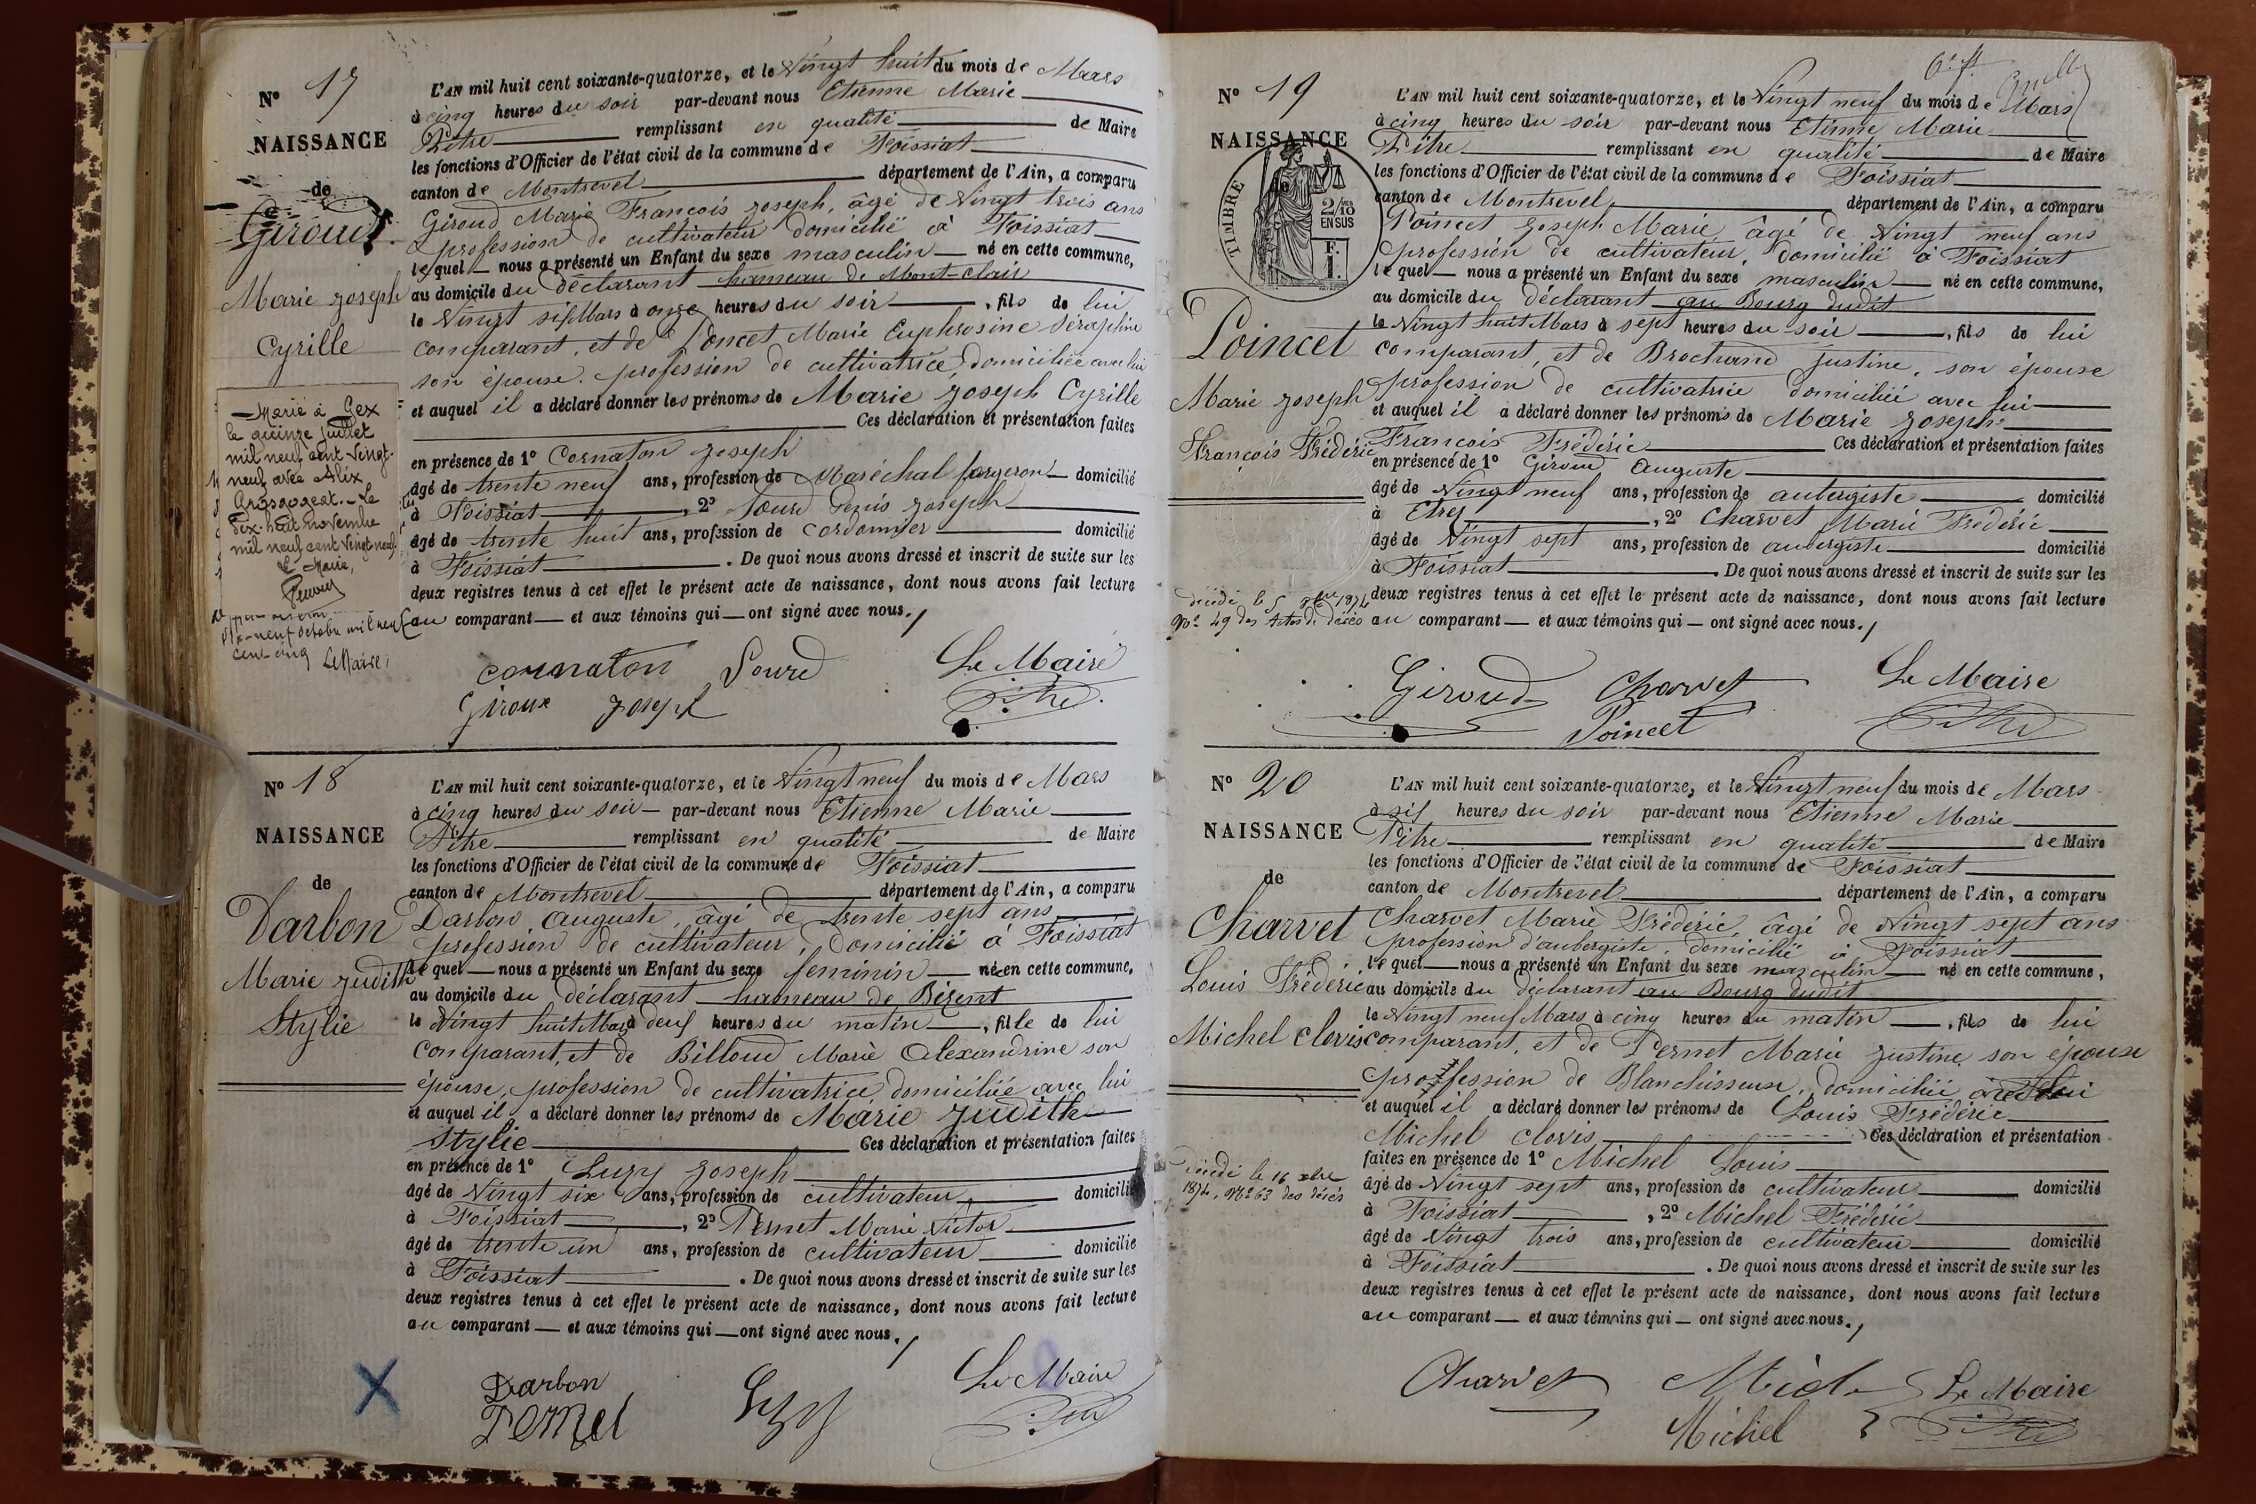 N° 17
NAISSANCE
de
Giroud
Marie Joseph
Cyrille
Marié à Gex
le quinze juillet
mil neuf cent vingt-
neuf avec Alix
Le
dix-huit novembre
mil neuf cent vingt-neuf.
Le Maire,
neuf octobre mil neuf
cent cinq
Le Maire,
L'AN mil huit cent soixante-quatorze, et le Vingt huit du mois de Mars
à cinq heures du soir par-devant nous Etienne Marie
Pitre remplissant en qualité de Maire
les fonctions d'Officier de l'état civil de la commune de Foissiat
canton de Montrevel département de l'Ain, a comparu
Giroud Marie François Joseph, âgé de Vingt trois ans
profession de cultivateur domicilié à Foissiat
lequel nous a présenté un Enfant du sexe masculin né en cette commune,
au domicile du déclarant hameau de Mont-clair
le Vingt six Mars à onze heures du soir, fils de lui
comparant, et de Poncet Marie Euphrosine Séraphine
son épouse. profession de cultivatrice domiciliée avec lui
et auquel il a déclaré donner les prénoms de Marie Joseph Cyrille
Ces déclaration et présentation faites
en présence de 1° Cornaton Joseph
âgé de trente neuf ans, profession de Maréchal forgeron domicilié
à Foissiat, 2° Sourd Denis Joseph
âgé de trente huit ans, profession de cordonnier domicilié
à Foissiat. De quoi nous avons dressé et inscrit de suite sur les
deux registres tenus à cet effet le présent acte de naissance, dont nous avons fait lecture
au comparant et aux témoins qui ont signé avec nous.
cornaton Sourd Le Maire
Giroux Joseph Pitre
N° 18
NAISSANCE
de
Darbon
Marie Judith
Stylie
L'AN mil huit cent soixante-quatorze, et le Vingt neuf du mois de Mars
à cinq heures du soir par-devant nous Etienne Marie
Pitre remplissant en qualité de Maire
les fonctions d'Officier de l'état civil de la commune de Foissiat
canton de Montrevel département de l'Ain, a comparu
Darbon Auguste, âgé de trente sept ans
profession de cultivateur, domicilié à Foissiat
lequel nous a présenté un Enfant du sexe féminin née en cette commune,
au domicile du déclarant hameau de Bézent
le Vingt huit Mars à deux heures du matin, fille de lui
comparant, et de Billoud Marie Alexandrine son
épouse, profession de cultivatrice domiciliée avec lui
et auquel il a déclaré donner les prénoms de Marie Judith
Stylie Ces déclaration et présentation faites
en présence de 1° Luzy Joseph
âgé de Vingt six ans, profession de cultivateur domicilié
à Foissiat, 2° Pernet Marie Victor
âgé de trente un ans, profession de cultivateur domicilié
à Foissiat. De quoi nous avons dressé et inscrit de suite sur les
deux registres tenus à cet effet le présent acte de naissance, dont nous avons fait lecture
au comparant et aux témoins qui ont signé avec nous.
Darbon Luzy Le Maire
Pernet Pitre
N° 19
NAISSANCE
de
TIMBRE
2/10
EN SUS
F.
1.
Poincet
Marie Joseph
François Frédéric
décédé le 5 1874
N° 49 des Actes de décès
L'AN mil huit cent soixante-quatorze, et le Vingt neuf du mois de Mars
à cinq heures du soir par-devant nous Etienne Marie
Pitre remplissant en qualité de Maire
les fonctions d'Officier de l'état civil de la commune de Foissiat
canton de Montrevel département de l'Ain, a comparu
Poincet Joseph Marie âgé de Vingt neuf ans
profession de cultivateur, domicilié à Foissiat
lequel nous a présenté un Enfant du sexe masculin né en cette commune,
au domicile du déclarant au Bourg dudit
le Vingt huit Mars à sept heures du soir, fils de lui
comparant, et de Brochand Justine, son épouse
profession de cultivatrice domiciliée avec lui
et auquel il a déclaré donner les prénoms de Marie Joseph
François Frédéric Ces déclaration et présentation faites
en présence de 1° Giroud Auguste
âgé de Vingt neuf ans, profession de aubergiste domicilié
à Etrez, 2° Charvet Marie Frédéric
âgé de Vingt sept ans, profession de aubergiste domicilié
à Foissiat. De quoi nous avons dressé et inscrit de suite sur les
deux registres tenus à cet effet le présent acte de naissance, dont nous avons fait lecture
au comparant et aux témoins qui ont signé avec nous.
Giroud Charvet Le Maire
Poincet Pitre
N° 20
NAISSANCE
de
Charvet
Louis Frédéric
Michel Clovis
Décédé le 16 xbre
1874, N° 63 des décès
L'AN mil huit cent soixante-quatorze, et le Vingt neuf du mois de Mars
à six heures du soir par-devant nous Etienne Marie
Pitre remplissant en qualité de Maire
les fonctions d'Officier de l'état civil de la commune de Foissiat
canton de Montrevel département de l'Ain, a comparu
Charvet Marie Frédéric, âgé de Vingt sept ans
profession d'aubergiste, domicilié à Foissiat
lequel nous a présenté un Enfant du sexe masculin né en cette commune,
au domicile du déclarant au Bourg dudit
le Vingt neuf Mars à cinq heures du matin, fils de lui
comparant, et de Pernet Marie Justine son épouse
profession de Blanchisseuse, domiciliée avec lui
et auquel il a déclaré donner les prénoms de Louis Frédéric
Michel Clovis Ces déclaration et présentation
faites en présence de 1° Michel Louis
âgé de Vingt sept ans, profession de cultivateur domicilié
à Foissiat, 2° Michel Frédéric
âgé de Vingt trois ans, profession de cultivateur domicilié
à Foissiat. De quoi nous avons dressé et inscrit de suite sur les
deux registres tenus à cet effet le présent acte de naissance, dont nous avons fait lecture
au comparant et aux témoins qui ont signé avec nous.
Charvet Michel Le Maire
Michel Pitre